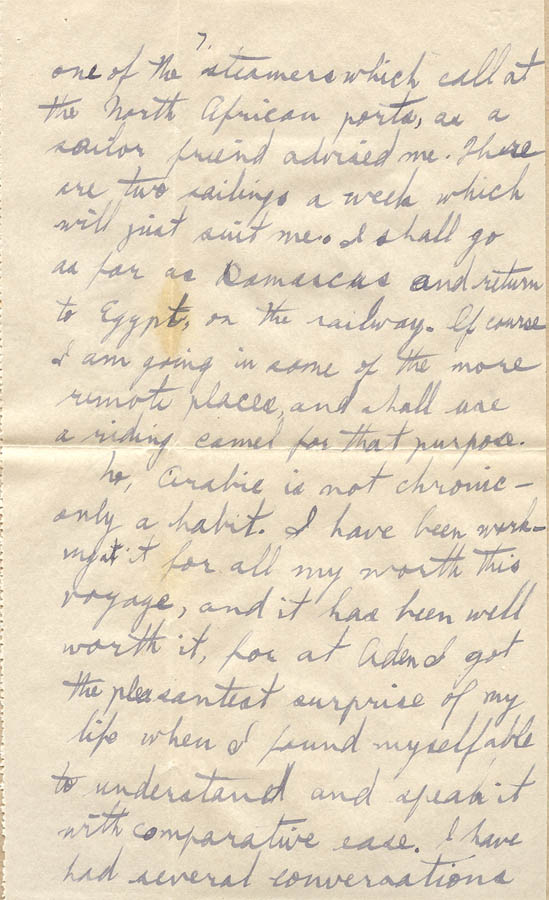 7.
one of the steamers which call at
the North African ports, as a
sailor friend advised me. There
are two sailings a week which
will just suit me. I shall go
as far as Damascus and return
to Egypt, on the railway. Of course
I am going in some of the more
remote places, and shall use
a riding camel for that purpose.
No, Arabic is not chronic-
only a habit. I have been work-
ing at it for all my worth this
voyage, and it has been well
worth it, for at Aden I got
the pleasantest surprise of my
life when I found myself able
to understand and speak it
with comparative ease. I have
had several conversations